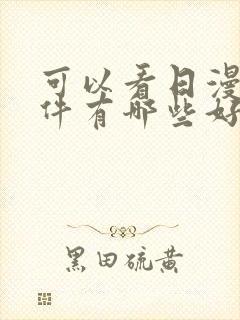 可以看日漫
件有哪些好
黑田硫黄